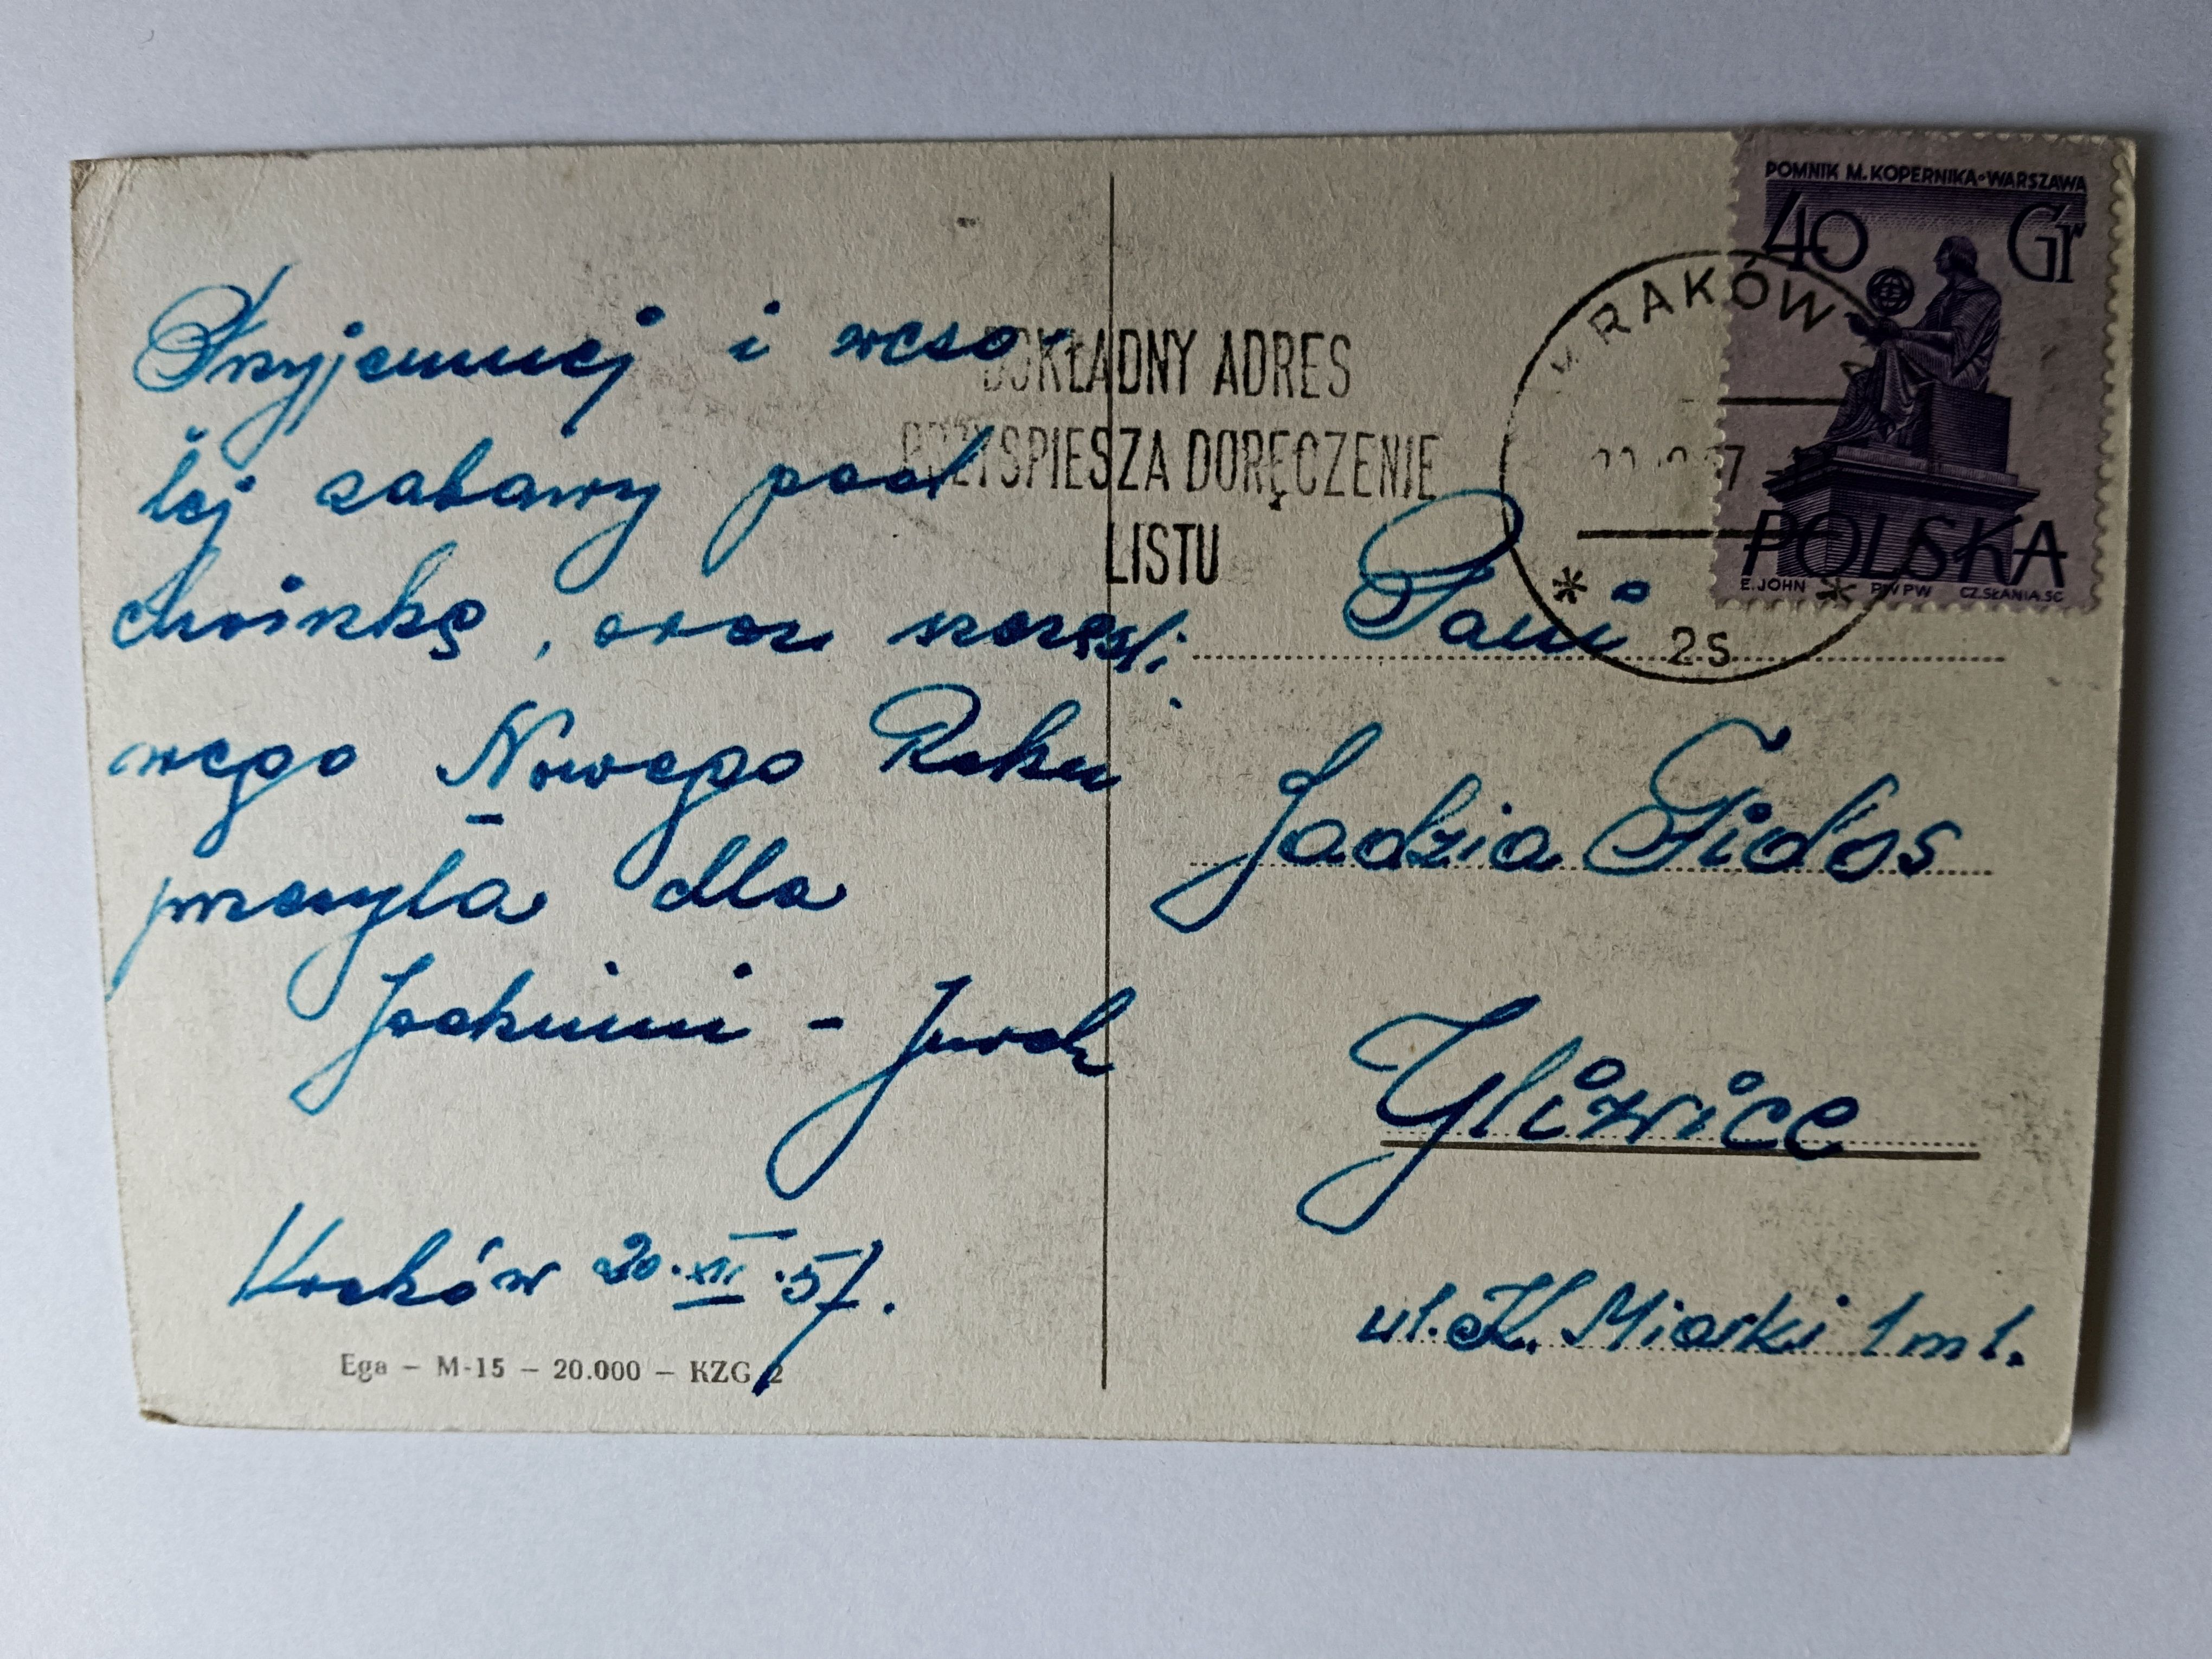 Przyjemnej i weso-
łej zabawy pod
choinkę, oraz szczęśli.
wego Nowego Roku
przesyła dla
Jadzieni - Jurek
Kraków 20.XII.57.
Ega – M-15 – 20.000 – KZG 2
DOKŁADNY ADRES
PRZYSPIESZA DORĘCZENIE
LISTU
KRAKÓW
* *
2S
POMNIK M. KOPERNIKA • WARSZAWA
40 Gr
POLSKA
E. JOHN PWPW CZ. SŁANIA. SC
Pani
Jadzia Fidos
Gliwice
ul. K. Miarki 1 m 1.